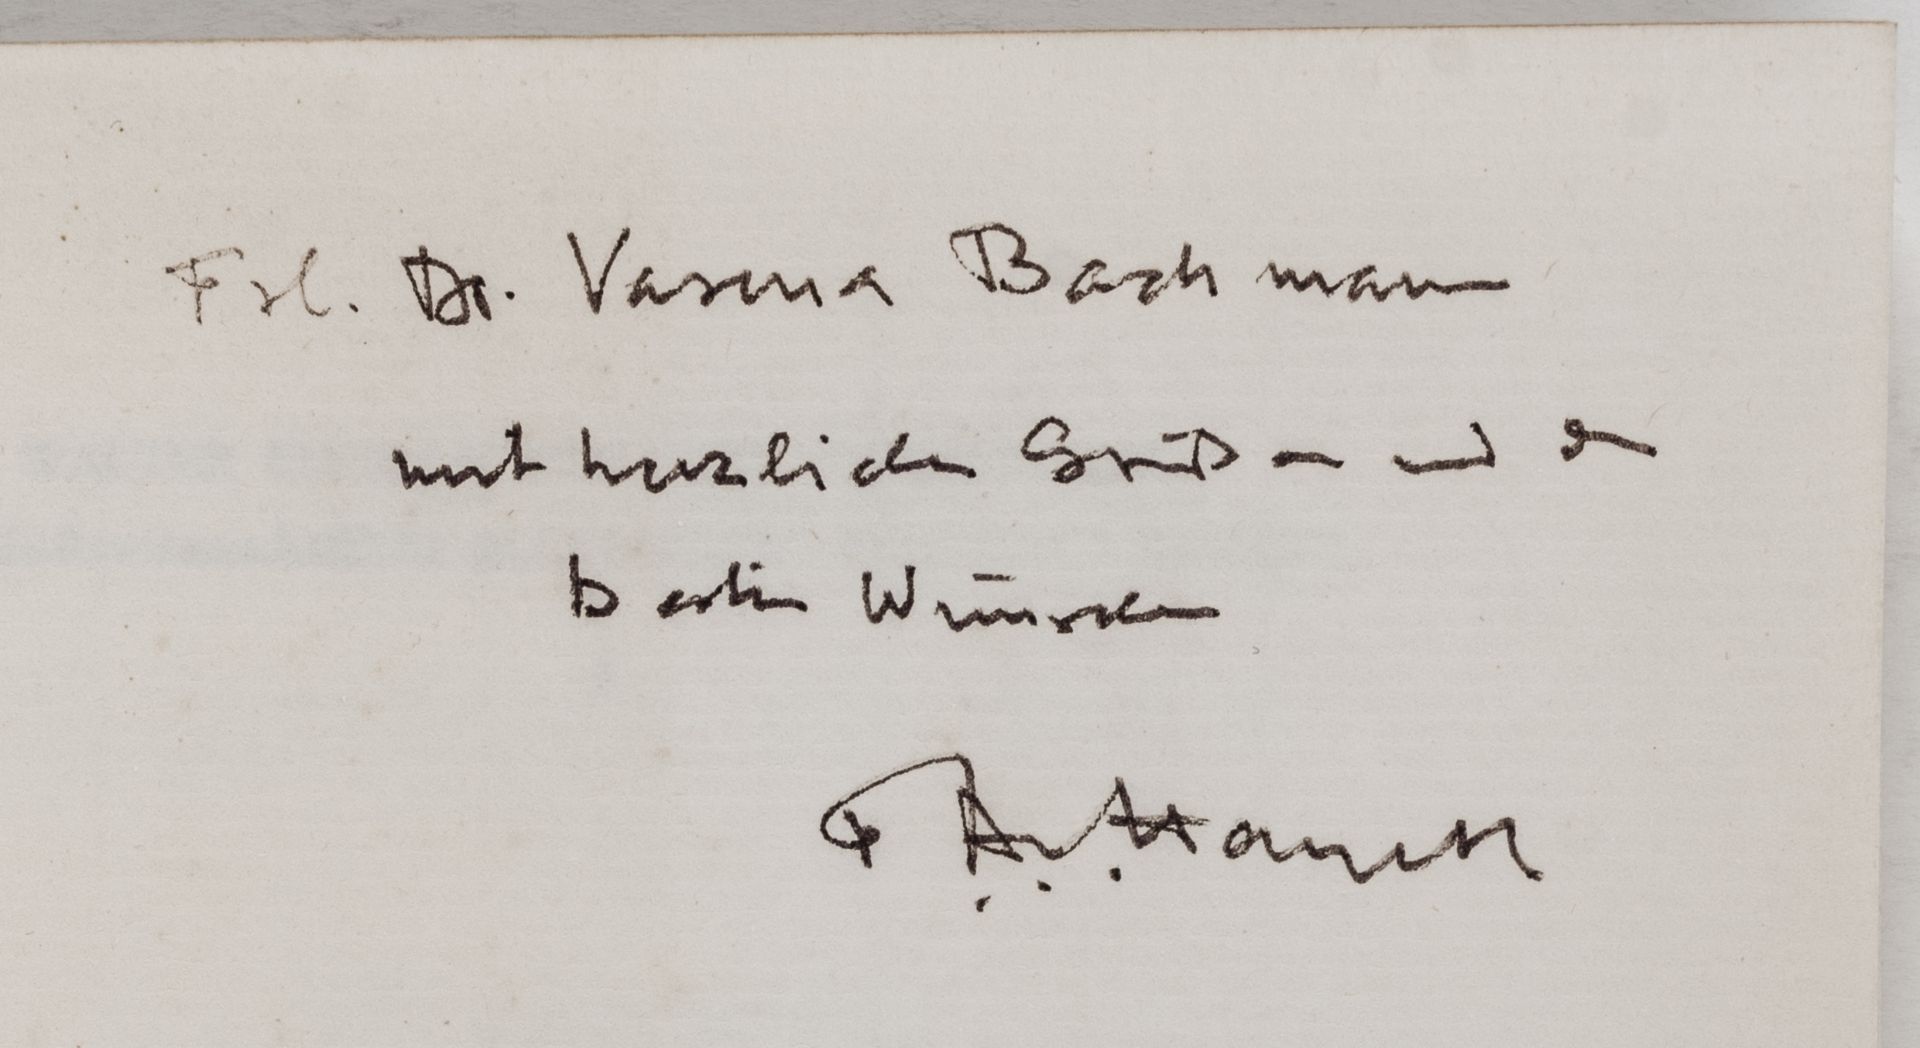 Frl. Dr. Verena Bachmann
mit herzlichen Grüßen und den
besten Wünschen
F. A. v. Hayek